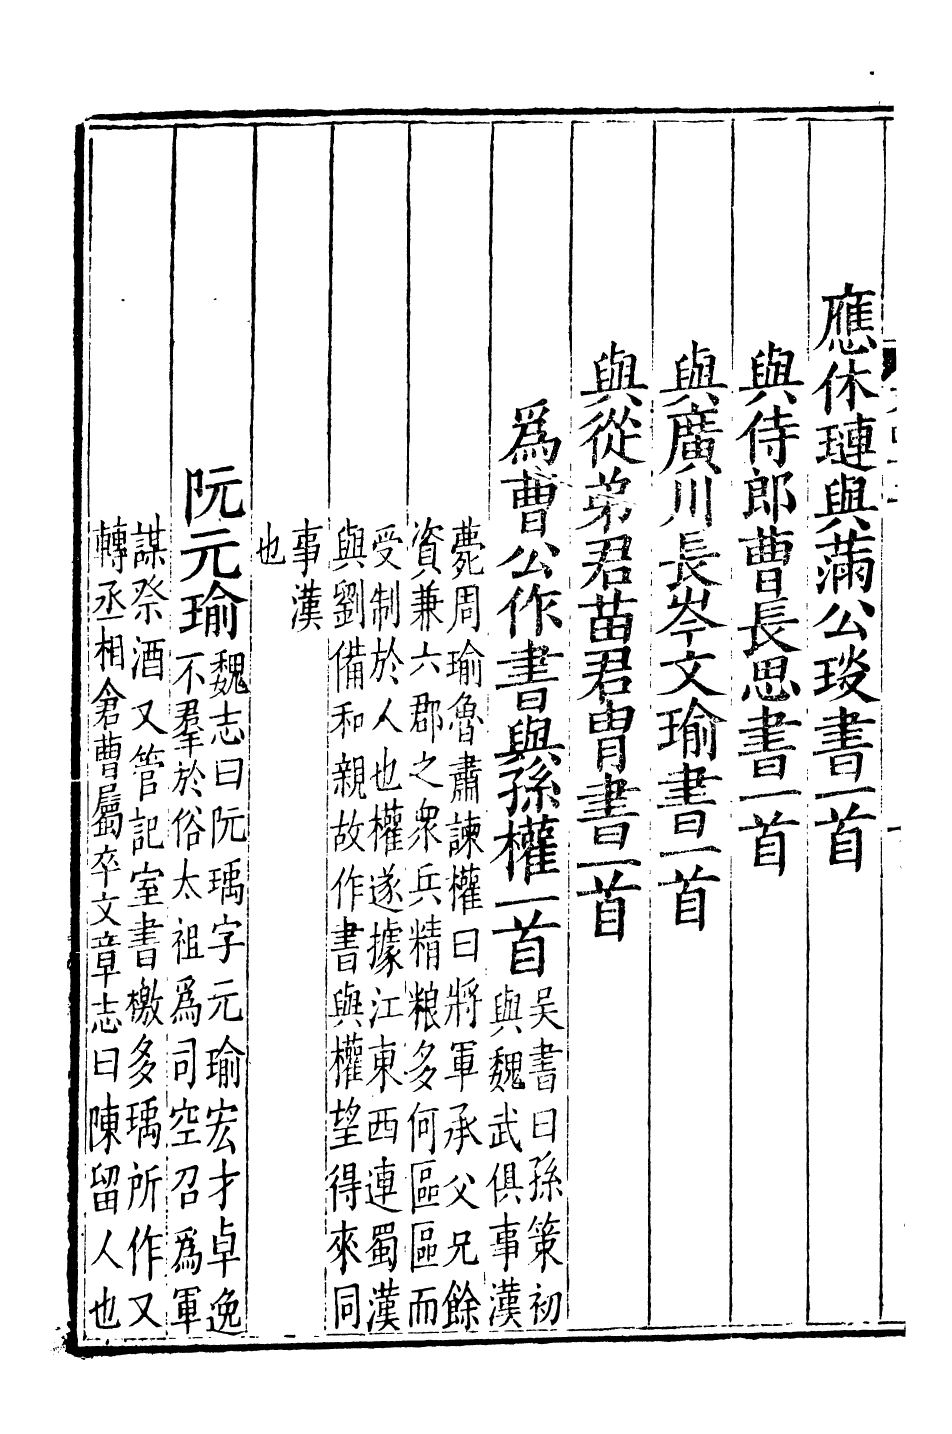 應休璉與滿公琰書一首
與侍郎曹長思書一首
與廣川長岑文瑜書一首
與從弟君苗君冑書一首
爲曹公作書與孫權一首
吳書曰孫策初
與魏武俱事漢
薨周瑜魯肅諫權曰將軍承父兄餘
資兼六郡之衆兵精粮多何區區而
受制於人也權遂據江東西連蜀漢
與劉備和親故作書與權望得來同
事漢
也
阮元瑜
魏志曰阮瑀字元瑜宏才卓逸
不羣於俗太祖爲司空召爲軍
謀祭酒又管記室書檄多瑀所作又
轉丞相倉曹屬卒文章志曰陳留人也